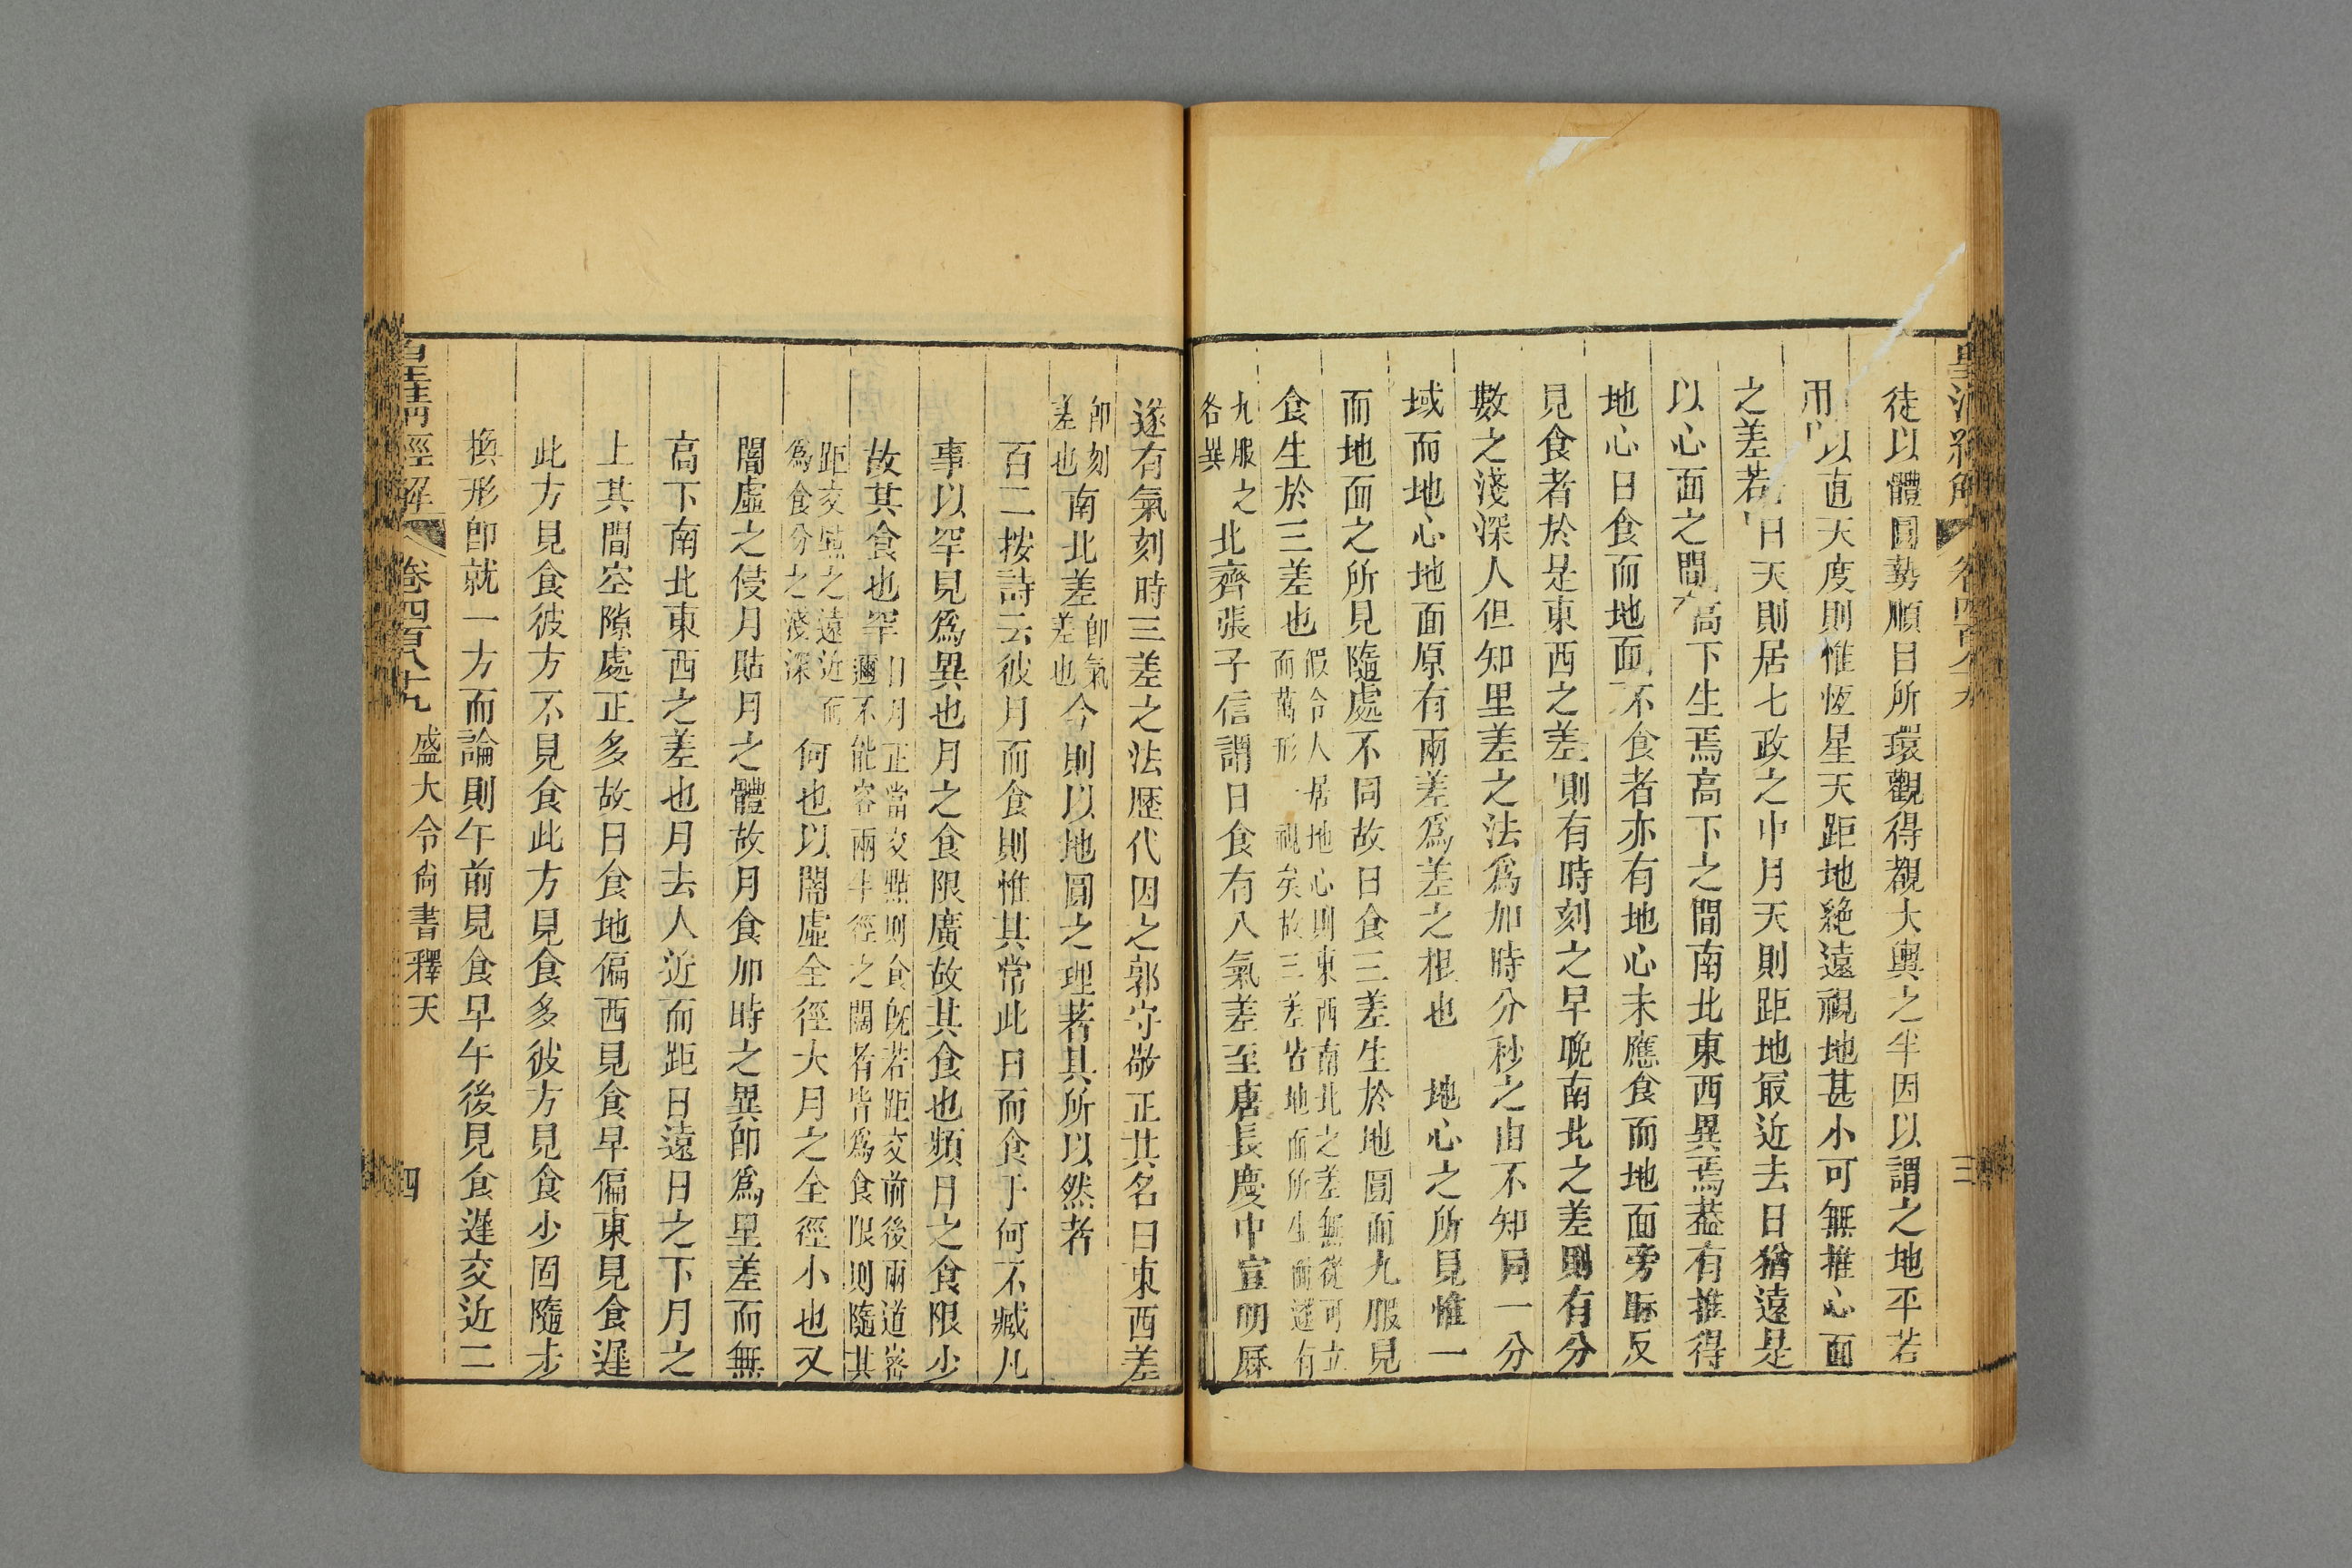 皇清經解
卷四百八十九
三
徒以體圓勢順目所環觀得覩大輿之半因以謂之地平若
用以直天度則惟恆星天距地絶遠視地甚小可無推心面
之差若日天則居七政之中月天則距地最近去日猶遠是
以心面之間高下生焉高下之間南北東西異焉葢有推得
地心日食而地面不食者亦有地心未應食而地面旁眎反
見食者於是東西之差則有時刻之早晚南北之差則有分
數之淺深人但知里差之法爲加時分秒之由不知同一分
域而地心地面原有兩差爲差之根也 地心之所見惟一
而地面之所見隨處不同故日食三差生於地圓而九服見
食生於三差也假令人居地心則東西南北之差無從可立
而萬形一視矣故三差皆地面所生而遂有
九服之
各異
北齊張子信謂日食有八氣差至唐長慶中宣明厤
遂有氣刻時三差之法歷代因之郭守敬正其名曰東西差
卽刻
差也
南北差卽氣
差也
今則以地圓之理著其所以然者
百二按詩云彼月而食則惟其常此日而食于何不臧凡
事以罕見爲異也月之食限廣故其食也頻日之食限少
故其食也罕日月正當交點則食旣若距交前後兩道崈
邇不能容兩半徑之闊者皆爲食限則隨其
距交點之遠近而
爲食分之淺深
何也以闇虛全徑大月之全徑小也又
闇虛之侵月貼月之體故月食加時之異卽爲里差而無
高下南北東西之差也月去人近而距日遠日之下月之
上其間空隙處正多故日食地偏西見食早偏東見食遲
此方見食彼方不見食此方見食多彼方見食少固隨步
換形卽就一方而論則午前見食早午後見食遲交近二
皇清經解
卷四百八十九
盛大令尙書釋天
四